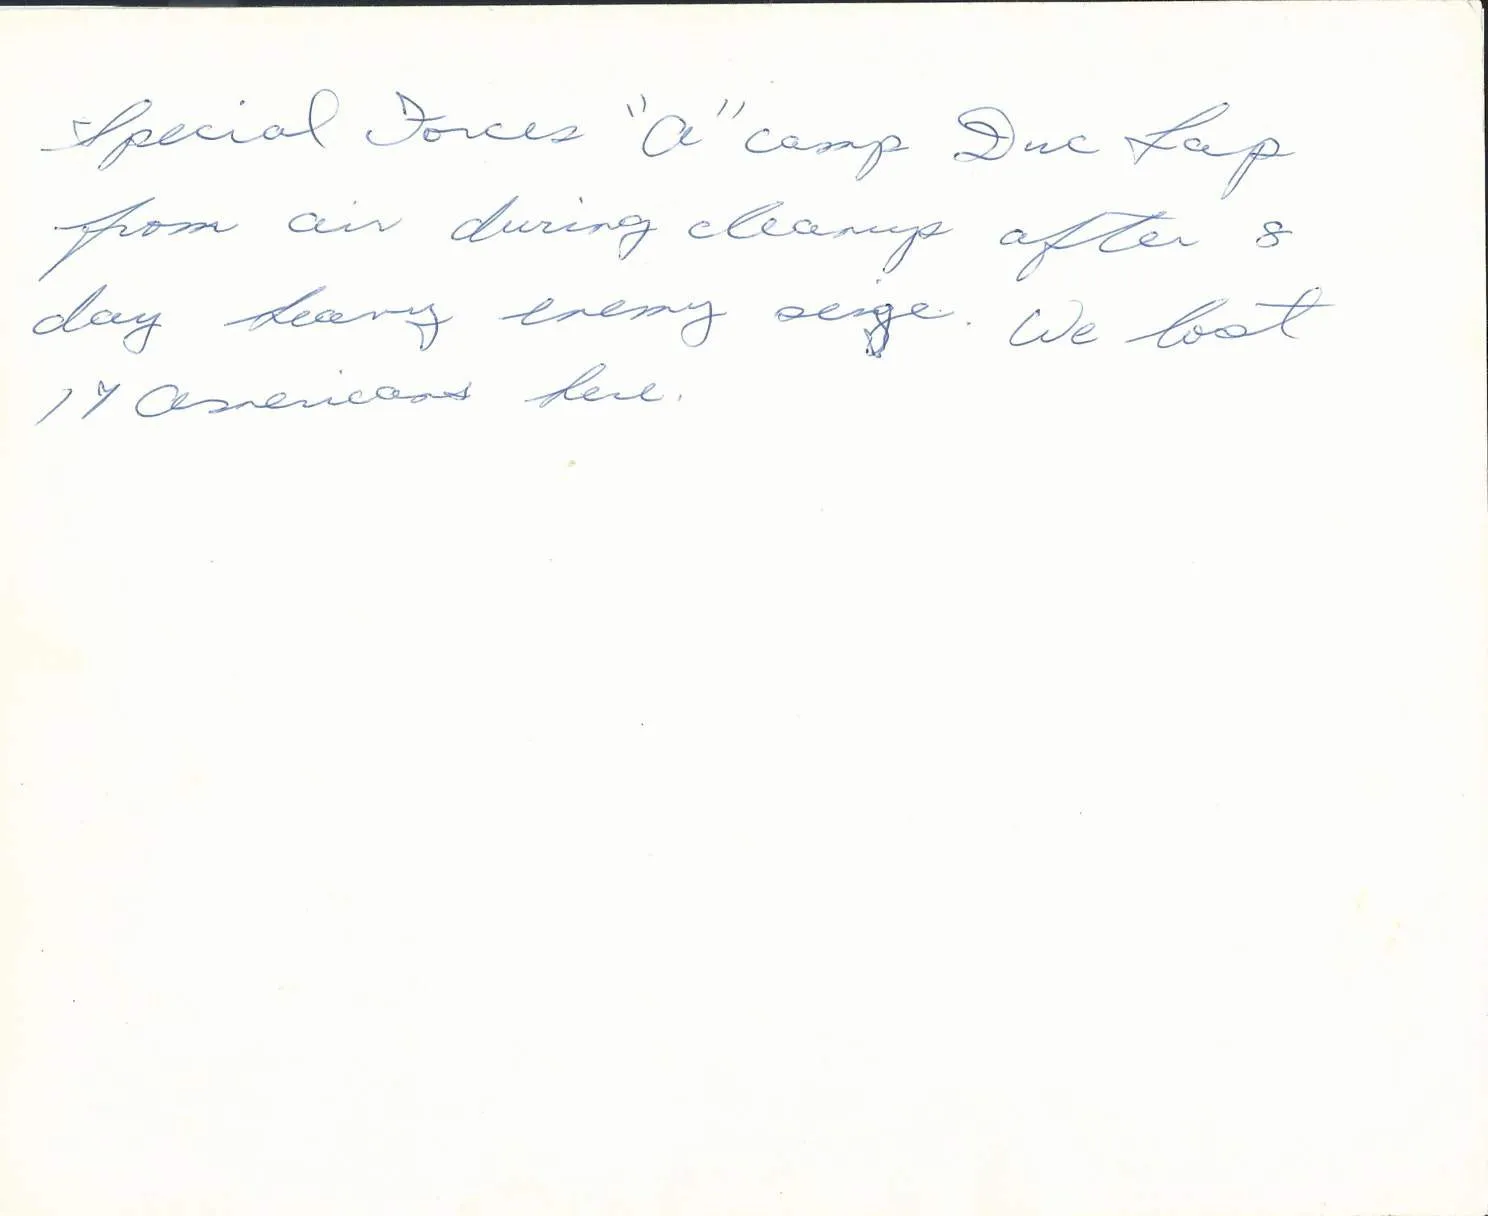 Special Forces "A" camp Duc Lap
from air during cleanup after 8
day heavy enemy seige. We lost
Americans here.